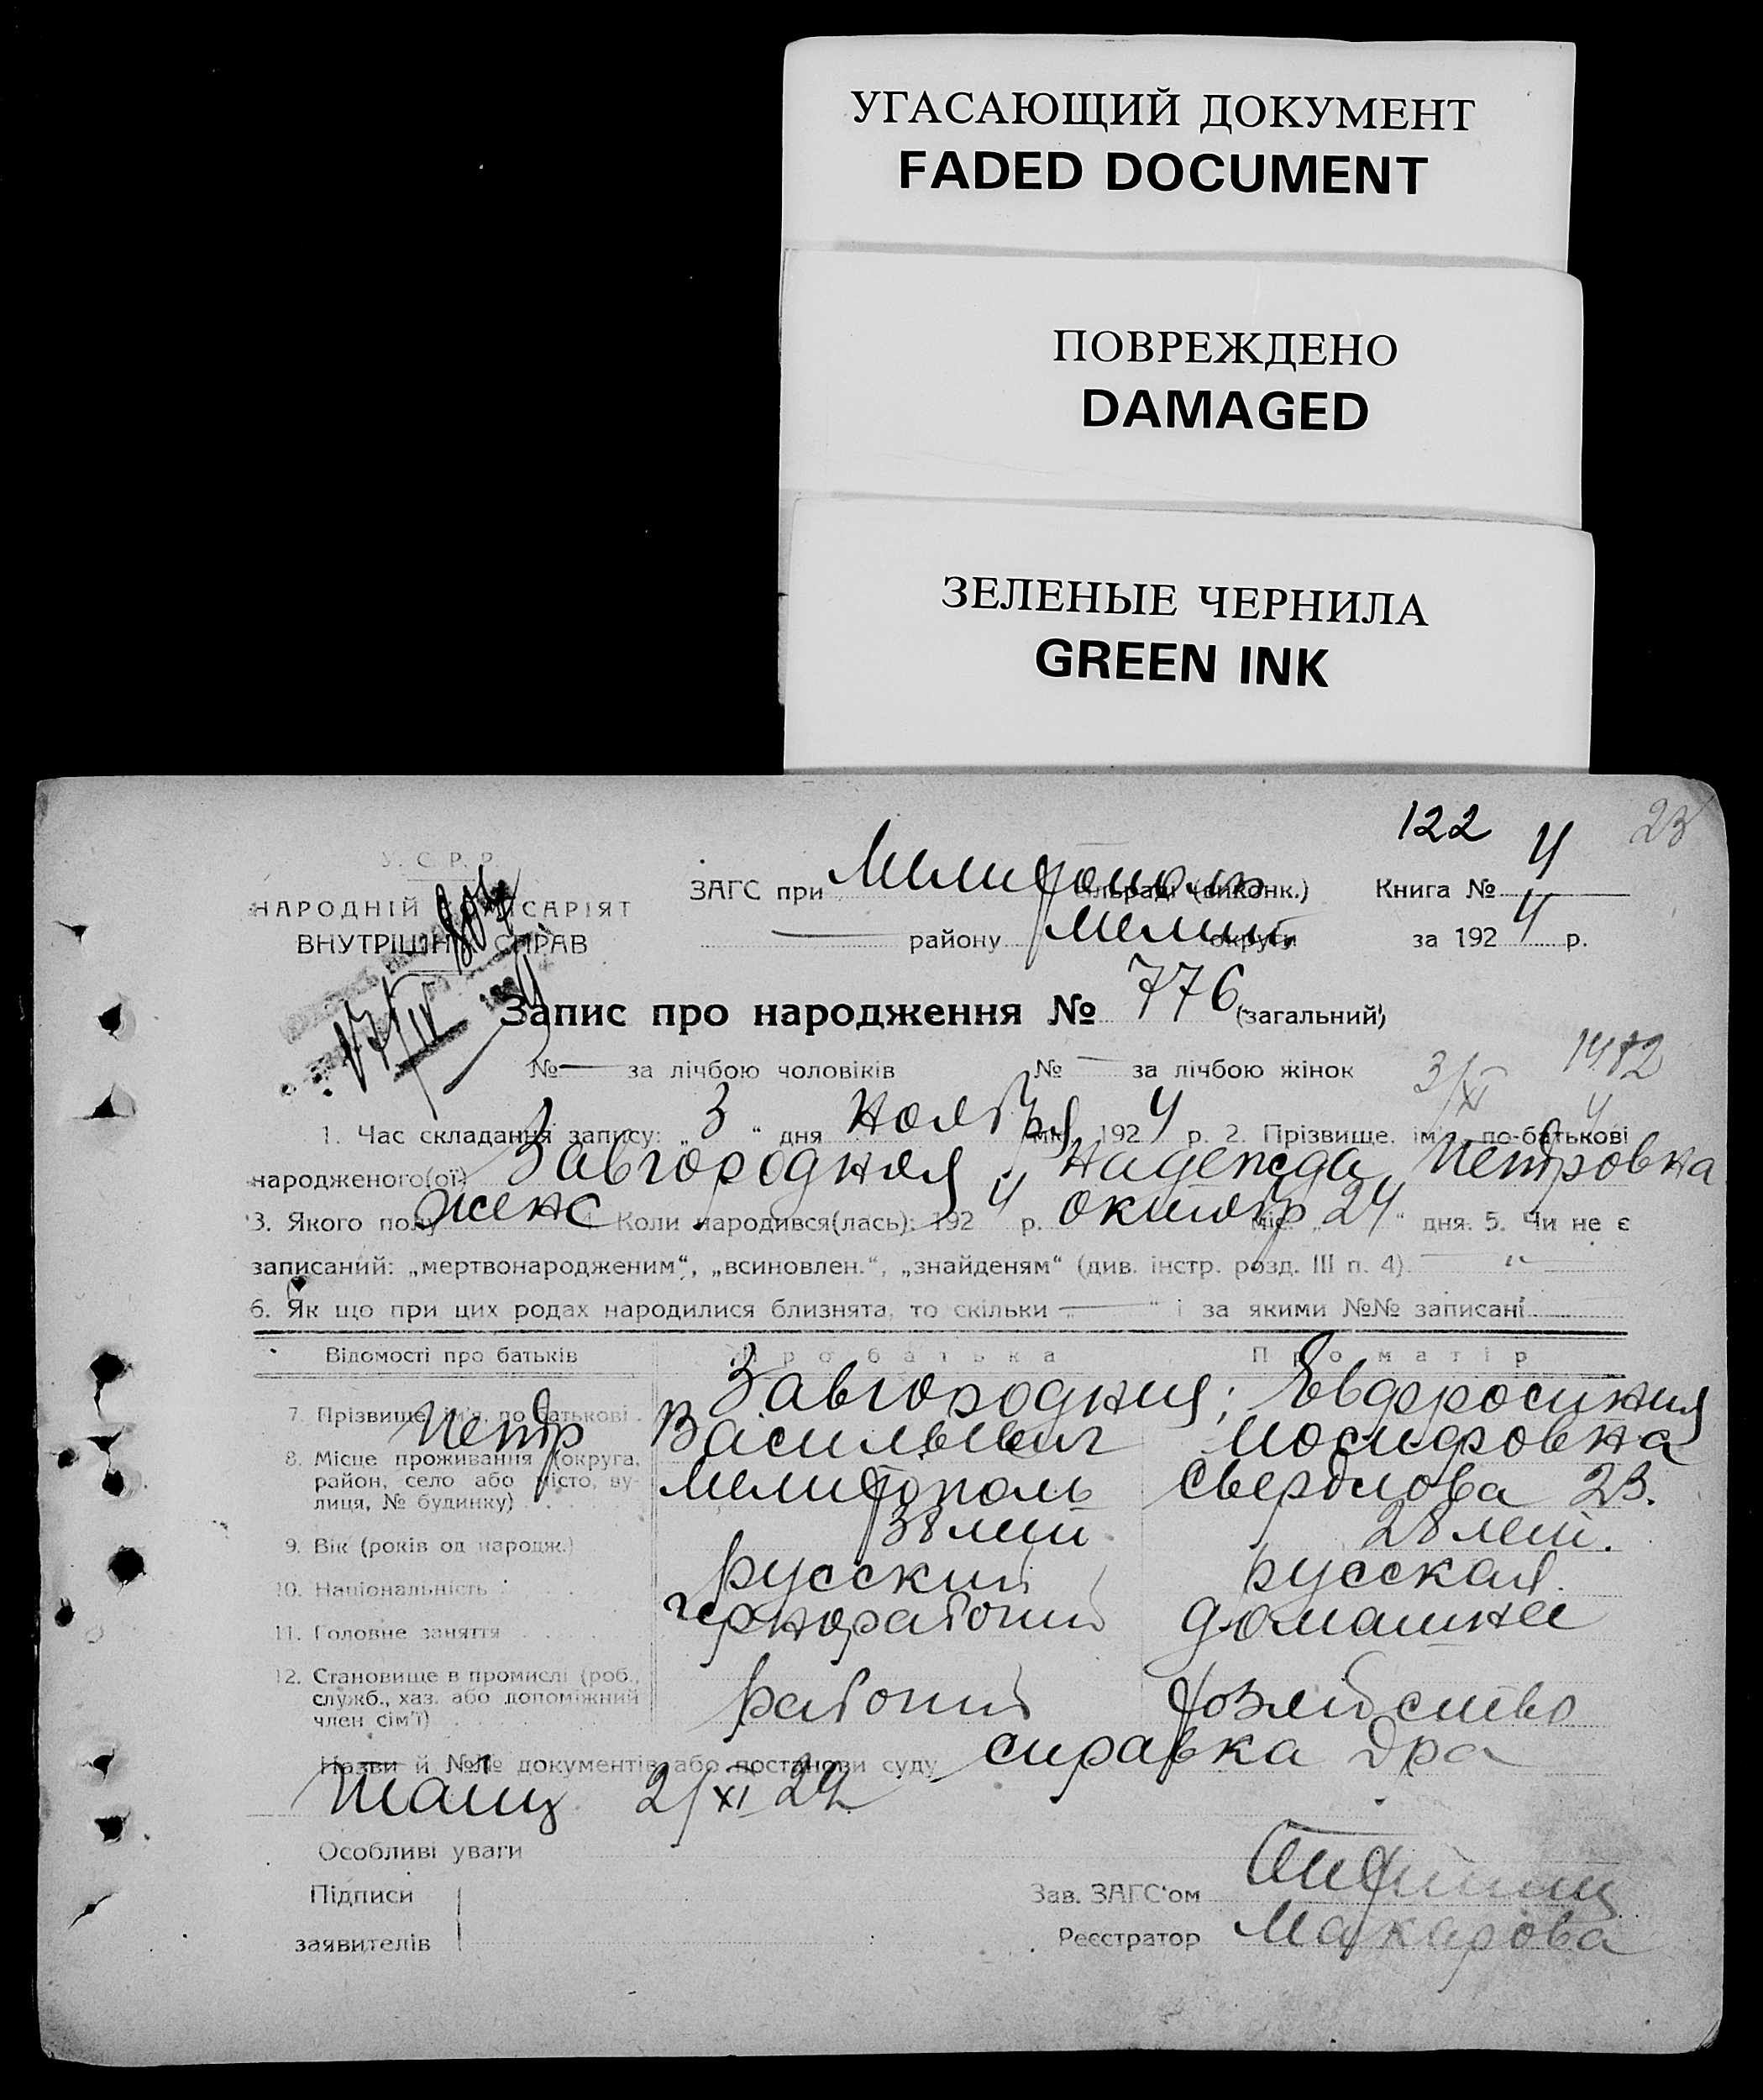 УГАСАЮЩИЙ ДОКУМЕНТ
FADED DOCUMENT
ПОВРЕЖДЕНО
DAMAGED
ЗЕЛЕНЫЕ ЧЕРНИЛА
GREEN INK
122 23
У. С. Р. Р.
НАРОДНІЙ КОМІСАРІЯТ
ВНУТРІШНІХ СПРАВ
ЗАГС при Мелитополь сільраді (виконк.) Книга № 4
району Мелит округи за 1924 р.
17/IV
Запис про народження № 776 (загальний)
№ — за лічбою чоловіків № — за лічбою жінок 3/XI
1. Час складання запису: „3“ дня Ноября міс. 1924 р. 2. Прізвище, ім'я, по-батькові
народженого(ої) Завгородняя Надежда Петровна
3. Якого полу женс 4. Коли народився(лась): 1924 р. октябр міс. „24“ дня. 5. Чи не є
записаний: „мертвонародженим“, „всиновлен.“, „знайденям“ (див. інстр. розд. III п. 4)
6. Як що при цих родах народилися близнята, то скільки — і за якими №№ записані
Відомості про батьків Про батька Про матір
7. Прізвище, ім'я, по-батькові Завгородния; Евфросиния
Петр Васильевич Иосифовна
8. Місце проживання (округа, район, село або місто, вулиця, № будинку) Мелитополь Свердлова 23.
9. Вік (років од народж.) 38 лет 28 лет.
10. Національність русский русская
11. Головне заняття чернорабочий домашнее
12. Становище в промислі (роб., служб., хаз. або допоміжний член сім'ї) рабочий хозяйство
Назви й №№ документів або постанови суду справка Дра
2/XI 24
Особливі уваги
Підписи
заявителів
Зав. ЗАГС'ом
Реєстратор Макарова